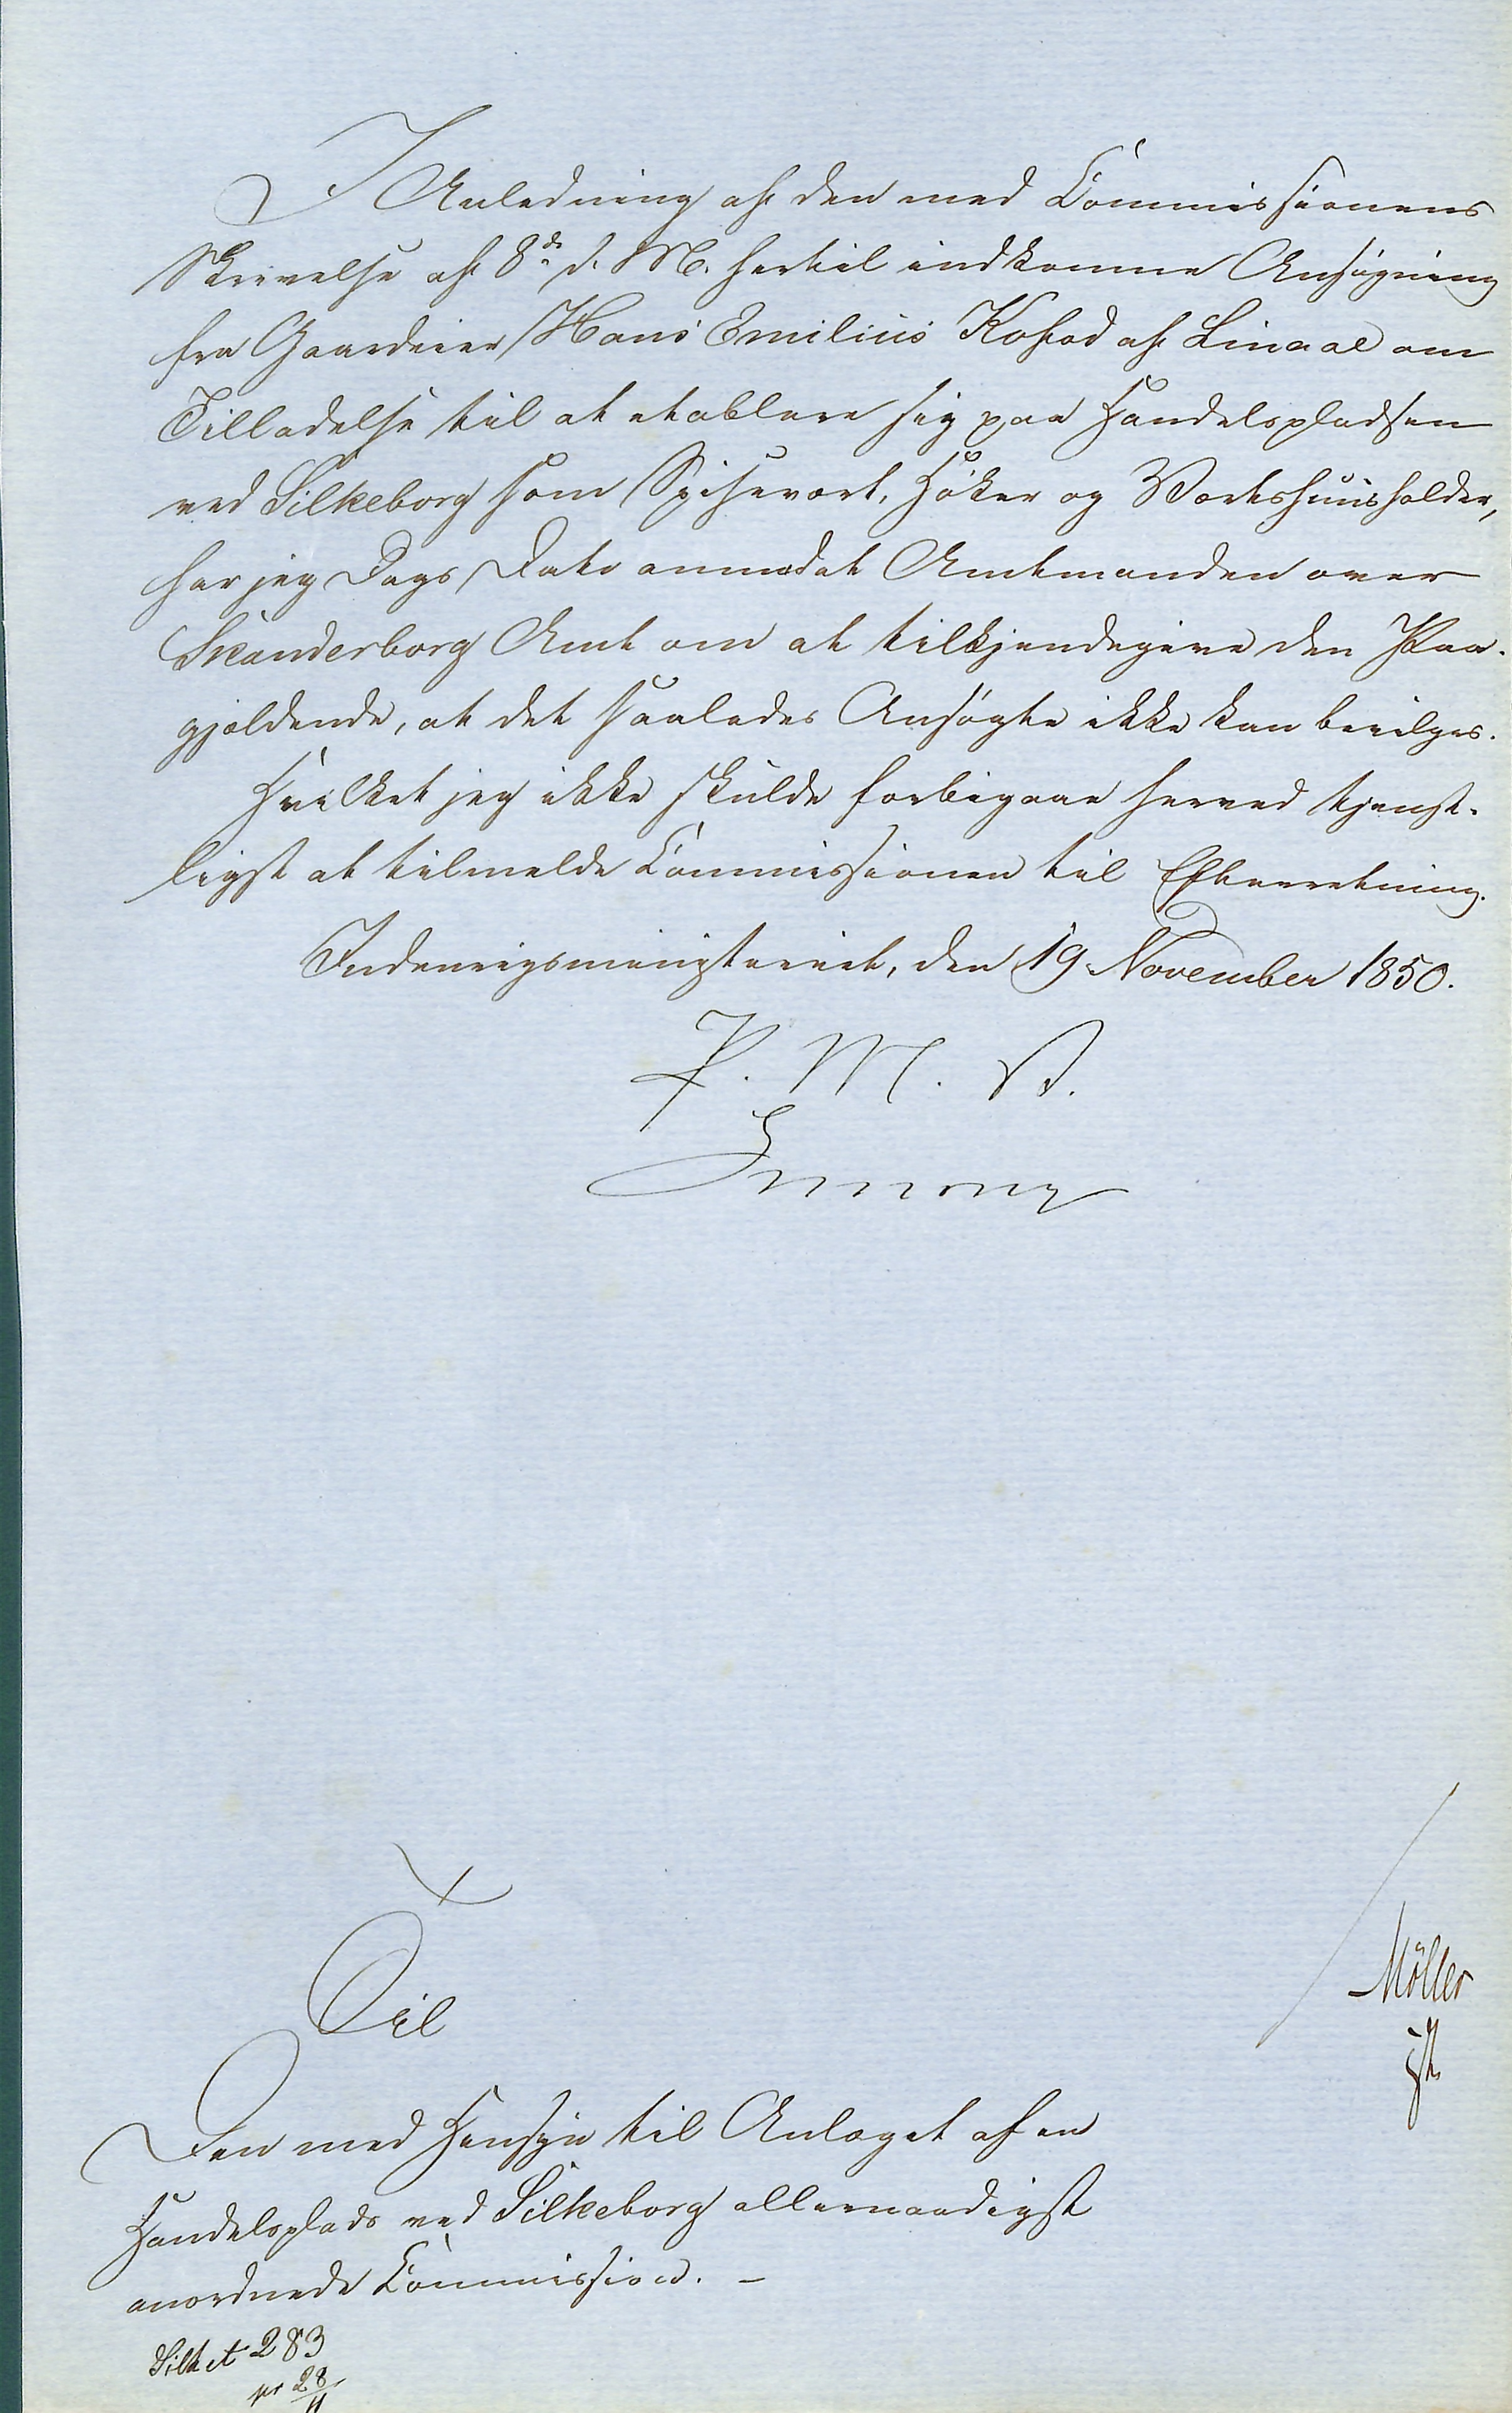 I Anledning af den med Commissionens
Skrivelse af 8de d. M. hertil indkomne Ansøgning
fra Gaardeier Hans Emilius Kofod af Linaae om
Tilladelse til at etablere sig paa Handelspladsen
ved Silkeborg som Spisevært, Høker og Vertshuusholder,
har jeg Dags Dato anmodet Amtmanden over
Skanderborg Amt om at tilkjendegive den Paa-
gjældende, at det saaledes Ansøgte ikke kan bevilges.
Hvilket jeg ikke skulde forbigaae herved tjenst-
ligst at tilmelde Commissionen til Efterretning.
Indenrigsministeriet, den 19 November 1850.
P. M. V.
Simony
Møller
Til
Den med Hensyn til Anlæget af en
Handelsplads ved Silkeborg allernaadigst
anordnede Commission. -
Silk et 283
pr 28/11